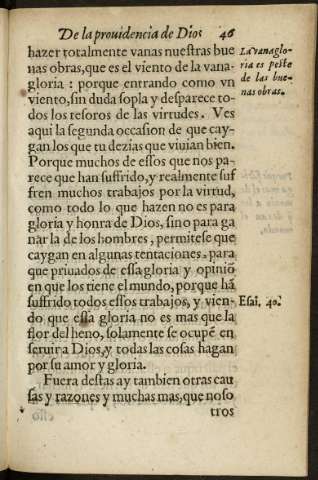 De la prouidencia de Dios 46
hazer totalmente vanas nuestras bue
nas obras, que es el viento de la vana-
gloria : porque entrando como vn
viento, sin duda sopla y desparece to-
dos los tesoros de las virtudes. Ves
aqui la segunda occasion de que cay-
gan los que tu dezias que viuian bien.
Porque muchos de essos que nos pa-
rece que han suffrido, y realmente suf
fren muchos trabajos por la virtud,
como todo lo que hazen no es para
gloria y honra de Dios, sino para ga
nar la de los hombres, permitese que
caygan en algunas tentaciones, para
que priuados de essa gloria y opiniõ
en que los tiene el mundo, porque hã
suffrido todos essos trabajos, y vien-
do que essa gloria no es mas que la
flor del heno, solamente se ocupẽ en
seruir a Dios, y todas las cosas hagan
por su amor y gloria.
Fuera destas ay tambien otras cau
sas y razones y muchas mas, que noso
tros
La vanaglo-
ria es peste
de las bue-
nas obras.
Esai. 40.